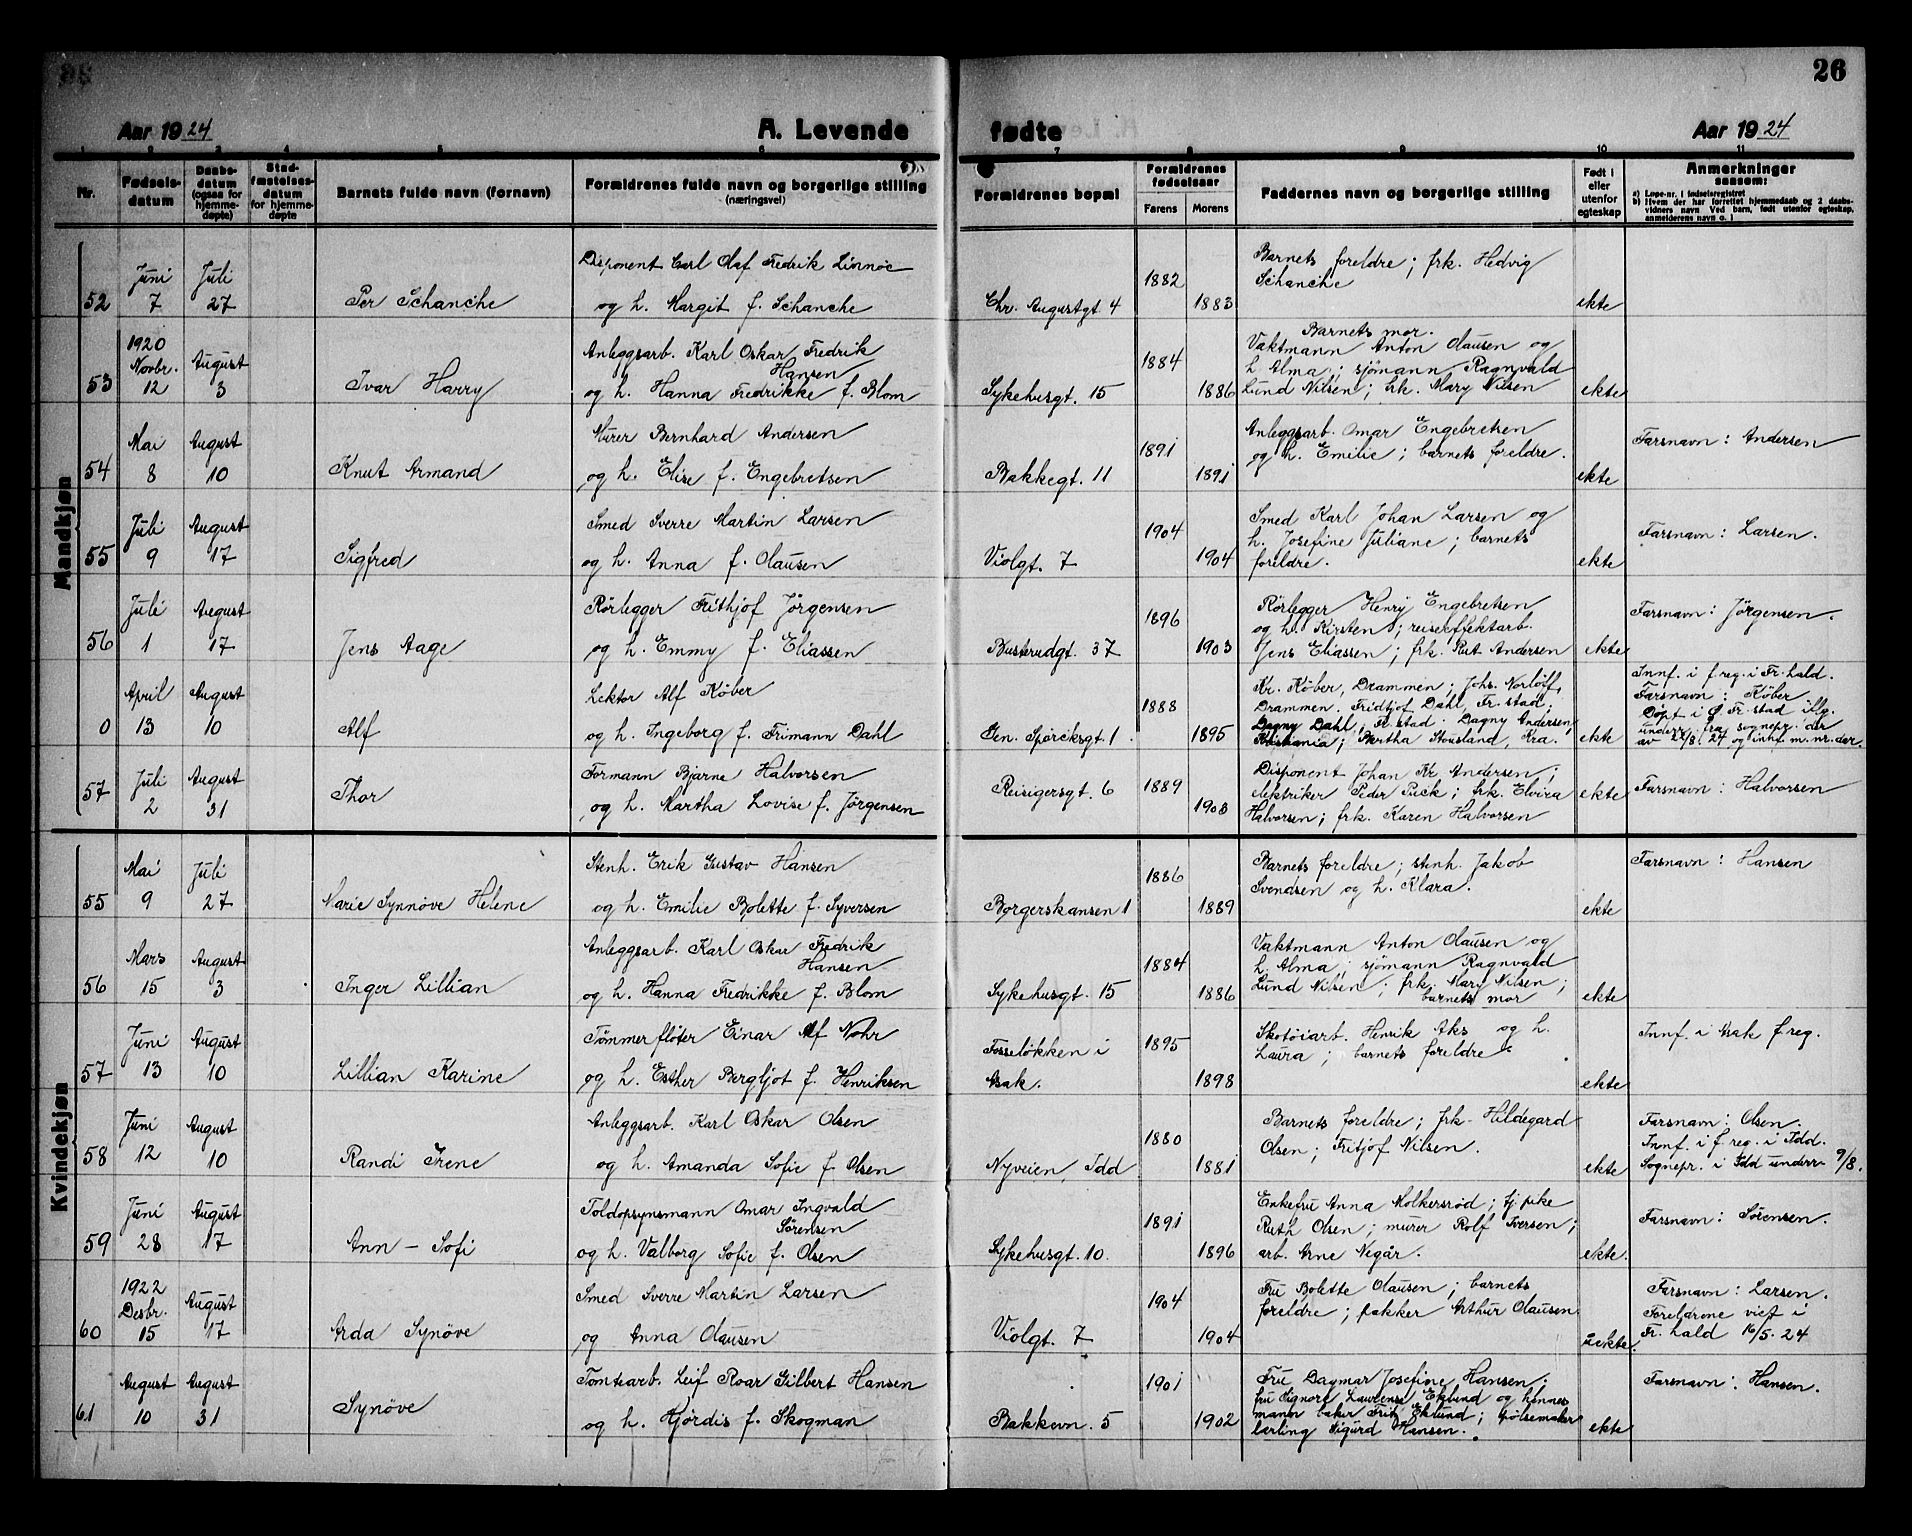 26
Aar 1924 A. Levende fødte Aar 1924
1 2 3 4 5 6 7 8 9 10 11
Nr. Fødsels-datum Daabs-datum (ogsaa for hjemme-døpte) Stad-fæstelses-datum for hjemme-døpte Barnets fulde navn (fornavn) Forældrenes fulde navn og borgerlige stilling (næringsvei) Forældrenes bopæl Forældrenes fødselsaar Farens Morens Faddernes navn og borgerlige stilling Født i eller utenfor egteskap Anmerkninger saasom:
a) Løpe-nr. i fødselsregistret
b) Hvem der har forrettet hjemmedaab og 2 daabs-vidners navn Ved barn, født utenfor egteskap, anmelderens navn o. l
Mandkjøn
52 Juni 7 Juli 27 Per Schanche
Disponent Carl Olaf Fredrik Linnöe
og h. Margit f. Schanche
Chr. Augustgt. 4 1882 1883
Barnets foreldre; frk. Hedvig
Schanche
ekte
53 1920 Novbr. 12 August 3 Ivar Harry
Anleggsarb. Karl Oskar Fredrik
Hansen
og h. Hanna Fredrikke f. Blom
Sykehusgt. 15 1884 1886
Barnets mor.
Vaktmann Anton Olausen og
h. Alma; sjömann Ragnvald
Lund Nilsen; frk. Mary Nilsen
ekte
54 Mai 8 August 10 Knut Armand
Murer Bernhard Andersen
og h. Elise f. Engebretsen
Bakkegt. 11 1891 1891
Anleggsarb. Omar Engebretsen
og h. Emilie; barnets foreldre.
ekte
Farsnavn: Andersen
55 Juli 9 August 17 Sigfred
Smed Sverre Martin Larsen
og h. Anna f. Olausen
Violgt. 7 1904 1904
Smed Karl Johan Larsen og
h. Josefine Juliane; barnets
foreldre.
ekte
Farsnavn: Larsen.
56 Juli 1 August 17 Jens Aage
Rörlegger Frithjof Jörgensen
og h. Emmy f. Eliassen
Busterudgt. 37 1896 1903
Rörlegger Henry Engebretsen
og h. Kirsten; reiseeffektarb.
Jens Eliassen; frk. Rut Andersen
ekte
Farsnavn: Jörgensen.
0 April 13 August 10 Alf
Lektor Alf Köber
og h. Ingeborg f. Frimann Dahl
Gen. Spöriksgt. 1. 1888 1895
Kr. Köber, Drammen; Johs. Norlöff,
Drammen. Fridtjof Dahl, Fr.stad;
Dagny Dahl, Fr.stad. Dagny Andersen,
Kristiania; Bertha Stousland, Kra.
ekte
Innf. i f.reg. i Fr.hald.
Farsnavn: Köber
Döpt i Ø Fr.stad iflg.
underr. fra sognepr. der
av 22/8. 24 og innf. m. nr. der.
57 Juli 2 August 31 Thor
Formann Bjarne Halvorsen
og h. Martha Lovise f. Jörgensen
Reisigersgt. 6 1889 1903
Disponent Johan Kr. Andersen;
elektriker Peder Puck; frk. Elvira
Halvorsen; frk. Karen Halvorsen
ekte
Farsnavn: Halvorsen
Kvindekjøn
55 Mai 9 Juli 27 Marie Synnöve Helene
Stenh. Erik Gustav Hansen
og h. Emilie Bolette f. Syversen
Borgerskansen 1 1886 1889
Barnets foreldre; stenh. Jakob
Svendsen og h. Klara.
ekte
Farsnavn: Hansen
56 Mars 15 August 3 Inger Lillian
Anleggsarb. Karl Oskar Fredrik
Hansen
og h. Hanna Fredrikke f. Blom
Sykehusgt. 15 1884 1886
Vaktmann Anton Olausen og
h. Alma; sjömann Ragnvald
Lund Nilsen; frk. Mary Nilsen;
barnets mor
ekte
57 Juni 13 August 10 Lillian Karine
Tömmerflöter Einar Alf Nohr
og h. Esther Bergljot f. Henriksen
Fosselökken i
Asak. 1895 1898
Skotöiarb. Henrik Aks og h.
Laura; barnets foreldre.
ekte
Innf. i Asak f.reg.
58 Juni 12 August 10 Randi Irene
Anleggsarb. Karl Oskar Olsen
og h. Amanda Sofie f. Olsen
Nyveien, Idd 1880 1881
Barnets foreldre; frk. Hildegard
Olsen; Fritjof Nilsen.
ekte
Farsnavn: Olsen.
Innf. i f.reg. i Idd.
Sognepr. i Idd underr. 9/8.
59 Juni 28 August 17 Ann-Sofi
Toldopsynsmann Omar Ingvald
Sörensen
og h. Valborg Sofie f. Olsen
Sykehusgt. 10. 1891 1896
Enkefru Anna Holkersröd; tj.pike
Ruth Olsen; murer Rolf Iversen;
arb. Arne Negår.
ekte.
Farsnavn: Sörensen.
60 1922 Desbr. 15 August 17 Arda Synöve
Smed Sverre Martin Larsen
og Anna Olausen
Violgt. 7 1904 1904
Fru Bolette Olausen; barnets
foreldre; pakker Arthur Olausen
uekte.
Farsnavn: Larsen.
Foreldrene viet i
Fr.hald 16/5. 24
61 August 10 August 31 Synöve
Tomtearb. Leif Roar Gilbert Hansen
og h. Hjördis f. Skogman
Bakkevn. 5 1901 1902
Fru Dagmar Josefine Hansen;
fru Signore Laurense Eklund og hennes
mann baker Fritz Eklund; pölsemaker
lærling Sigurd Hansen.
ekte
Farsnavn: Hansen.